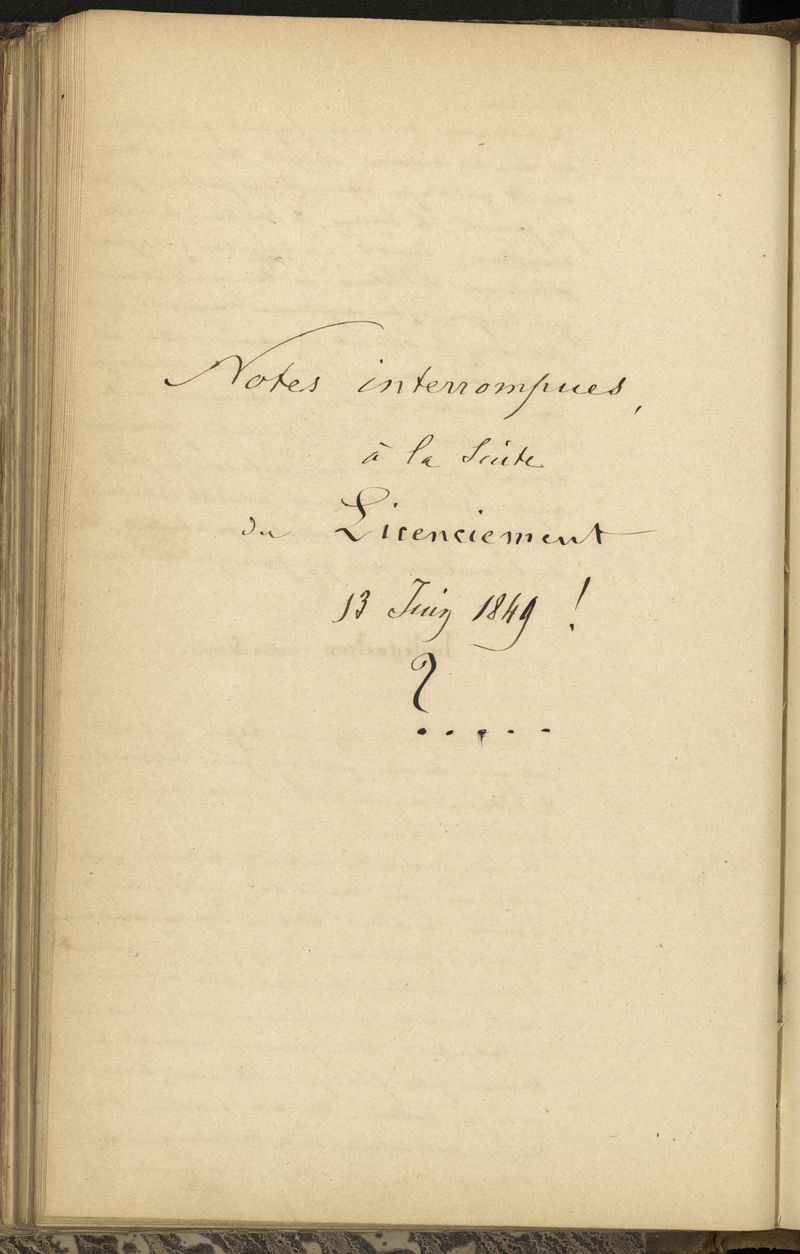 Notes interrompues,
à la Suite
du Licenciement
13 Juin 1849 !
?
.....